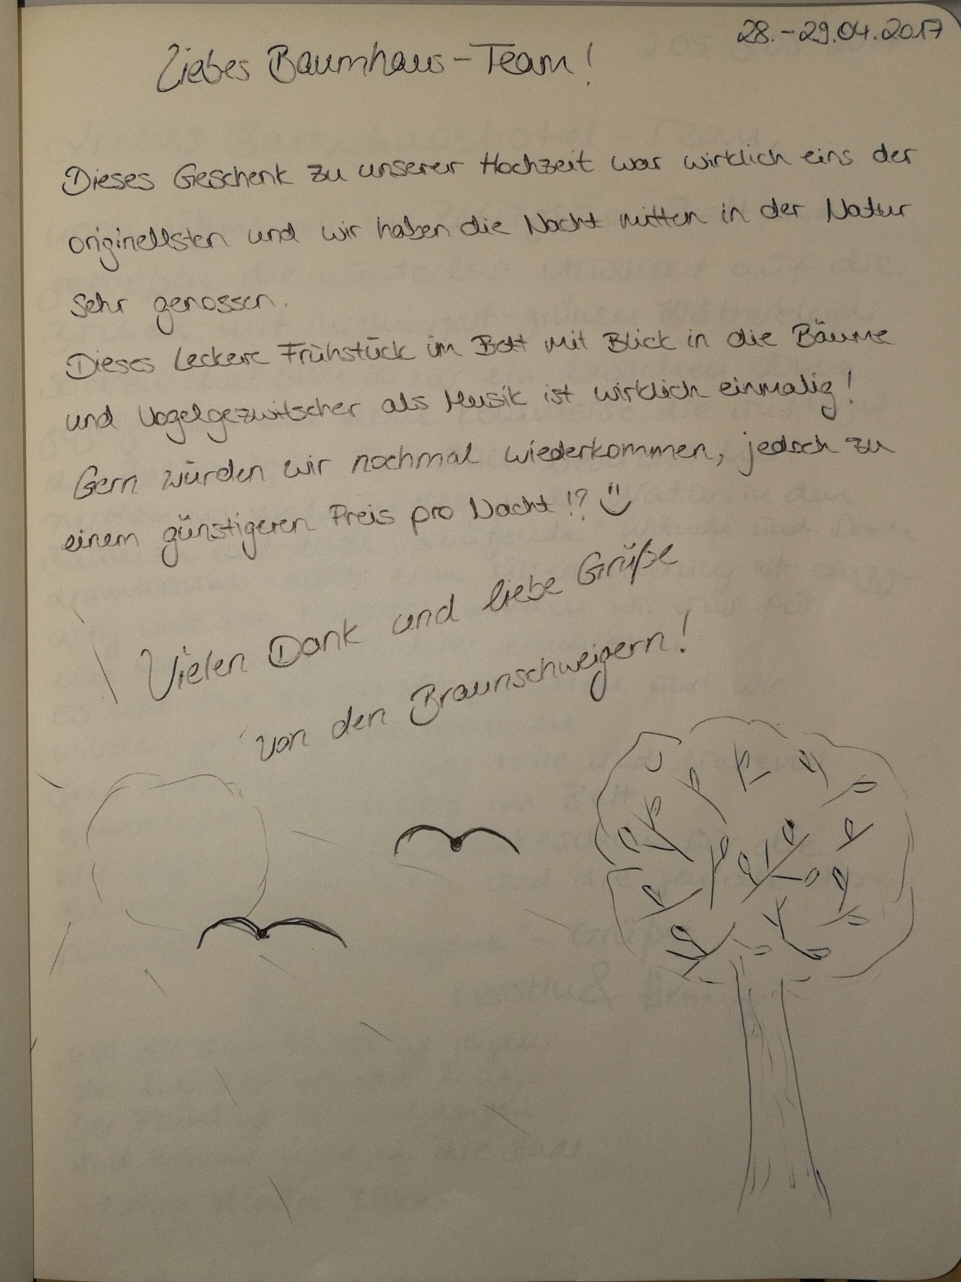 28.-29.04.2017
Liebes Baumhaus-Team!
Dieses Geschenk zu unserer Hochzeit war wirklich eins der
originellsten und wir haben die Nacht mitten in der Natur
sehr genossen.
Dieses leckere Frühstück im Bett mit Blick in die Bäume
und Vogelgezwitscher als Musik ist wirklich einmalig!
Gern würden wir nochmal wiederkommen, jedoch zu
einem günstigeren Preis pro Nacht!? ☺
Vielen Dank und liebe Grüße
von den Braunschweigern!